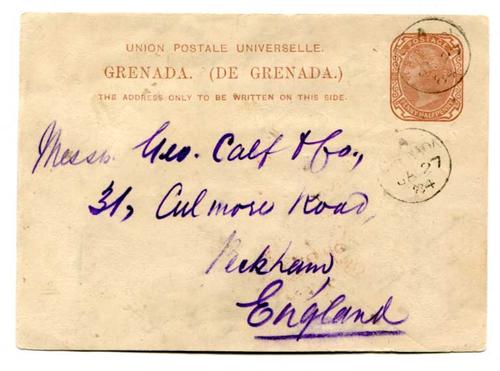 UNION POSTALE UNIVERSELLE.
GRENADA. (DE GRENADA.)
THE ADDRESS ONLY TO BE WRITTEN ON THIS SIDE.
POSTAGE
A
A
27
84
Messrs. Geo. Calf & Co.,
31, Culmore Road,
Peckham,
England